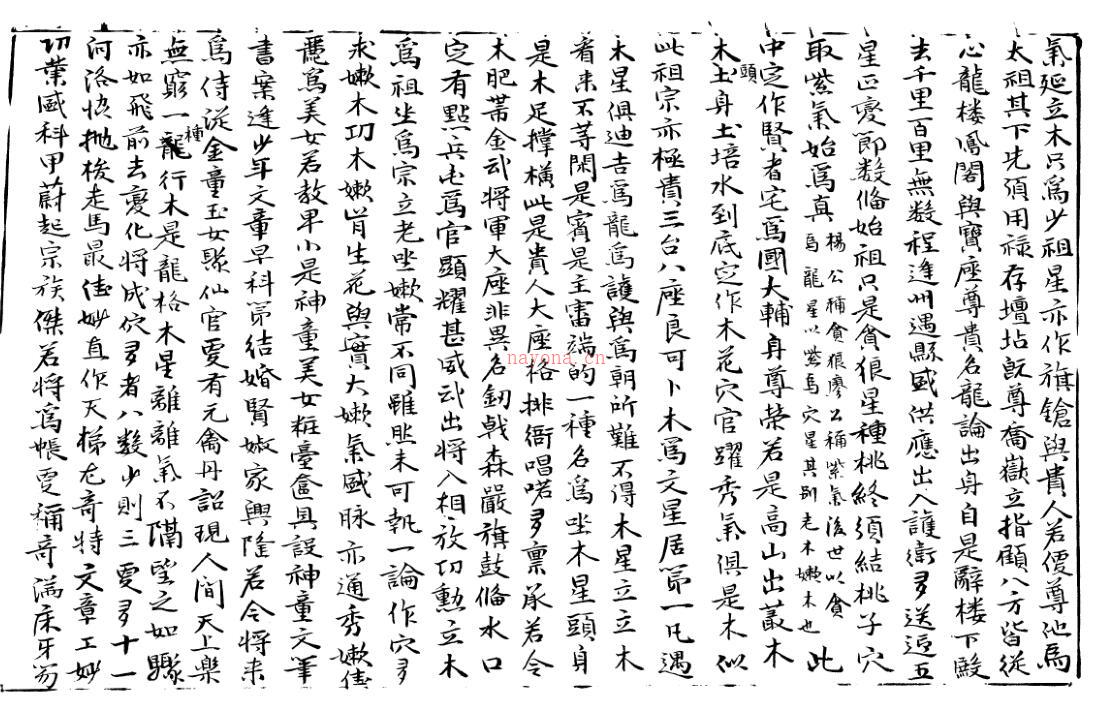 氣延立木只爲少祖星亦作旗鎗與貴人若優尊他爲
太祖其下先須用祿存壇坫旣尊喬嶽立指顧八方皆從
心龍楼鳳閣與寶座尊貴名龍論出身自是辭楼下殿
去千里百里無数程逢州遇縣盛供應出入護衛多送迎五
星正变節数俻始祖只是貪狼星種桃終須結桃子穴
取紫氣始爲真楊公稱貪狼廖公稱紫氣後世以貪爲龍星以紫爲穴星其别老木嫰木也此
中定作賢者宅爲國大輔身尊榮若是高山出叢木
木頭土身土培水到底定作木花穴官躍秀氣俱是木似
此祖宗亦極貴三台八座良可卜木爲文星居第一凡遇
木星俱迪吉爲龍爲護與爲朝所難不得木星立立木
看来不等閑是賓是主審端的一種名爲坐木星頭身
是木足撑横此是貴人大座格排衙唱喏多禀承若令
木肥带金武将軍大座非異名劒戟森嚴旗鼓俻水口
定有點兵屯爲官顯耀甚威武出将入相放功勳立木
爲祖坐爲宗立老坐嫰常不同雖然未可執一論作穴多
求嫰木功木嫰肯生花與實大嫰氣盛脉亦通秀嫰佳
麗爲美女若教早小是神童美女粧臺奩具設神童文筆
書案逢少年文章早科第結婚賢淑家興隆若令将来
爲侍從金童玉女聚仙官更有元禽丹詔現人间天上樂
無窮一種龍行木是龍格木星離離氣不隔望之如驟
亦如飛前去变化将成穴多者八数少則三更多十一
河洛恊抛梭走馬最佳妙直作天梯尤奇特文章工妙
功業盛科甲蔚起宗族傑若将爲帳更稱奇满床牙笏
nayona.cn